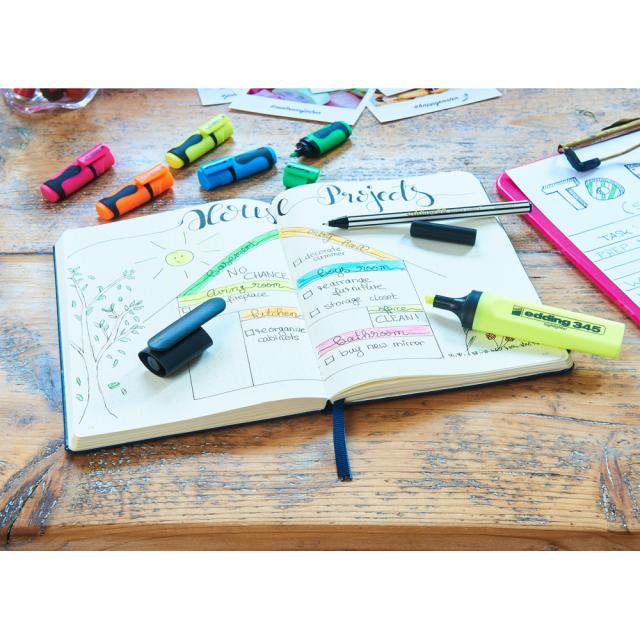 House Projects
basement
NO CHANCE
living room
fireplace
kitchen
reorganize
cabinets
decorate
summer
boys room
rearrange
furniture
storage closet
office
CLEAN!
bathroom
buy new mirror
edding 345
TO
TASK